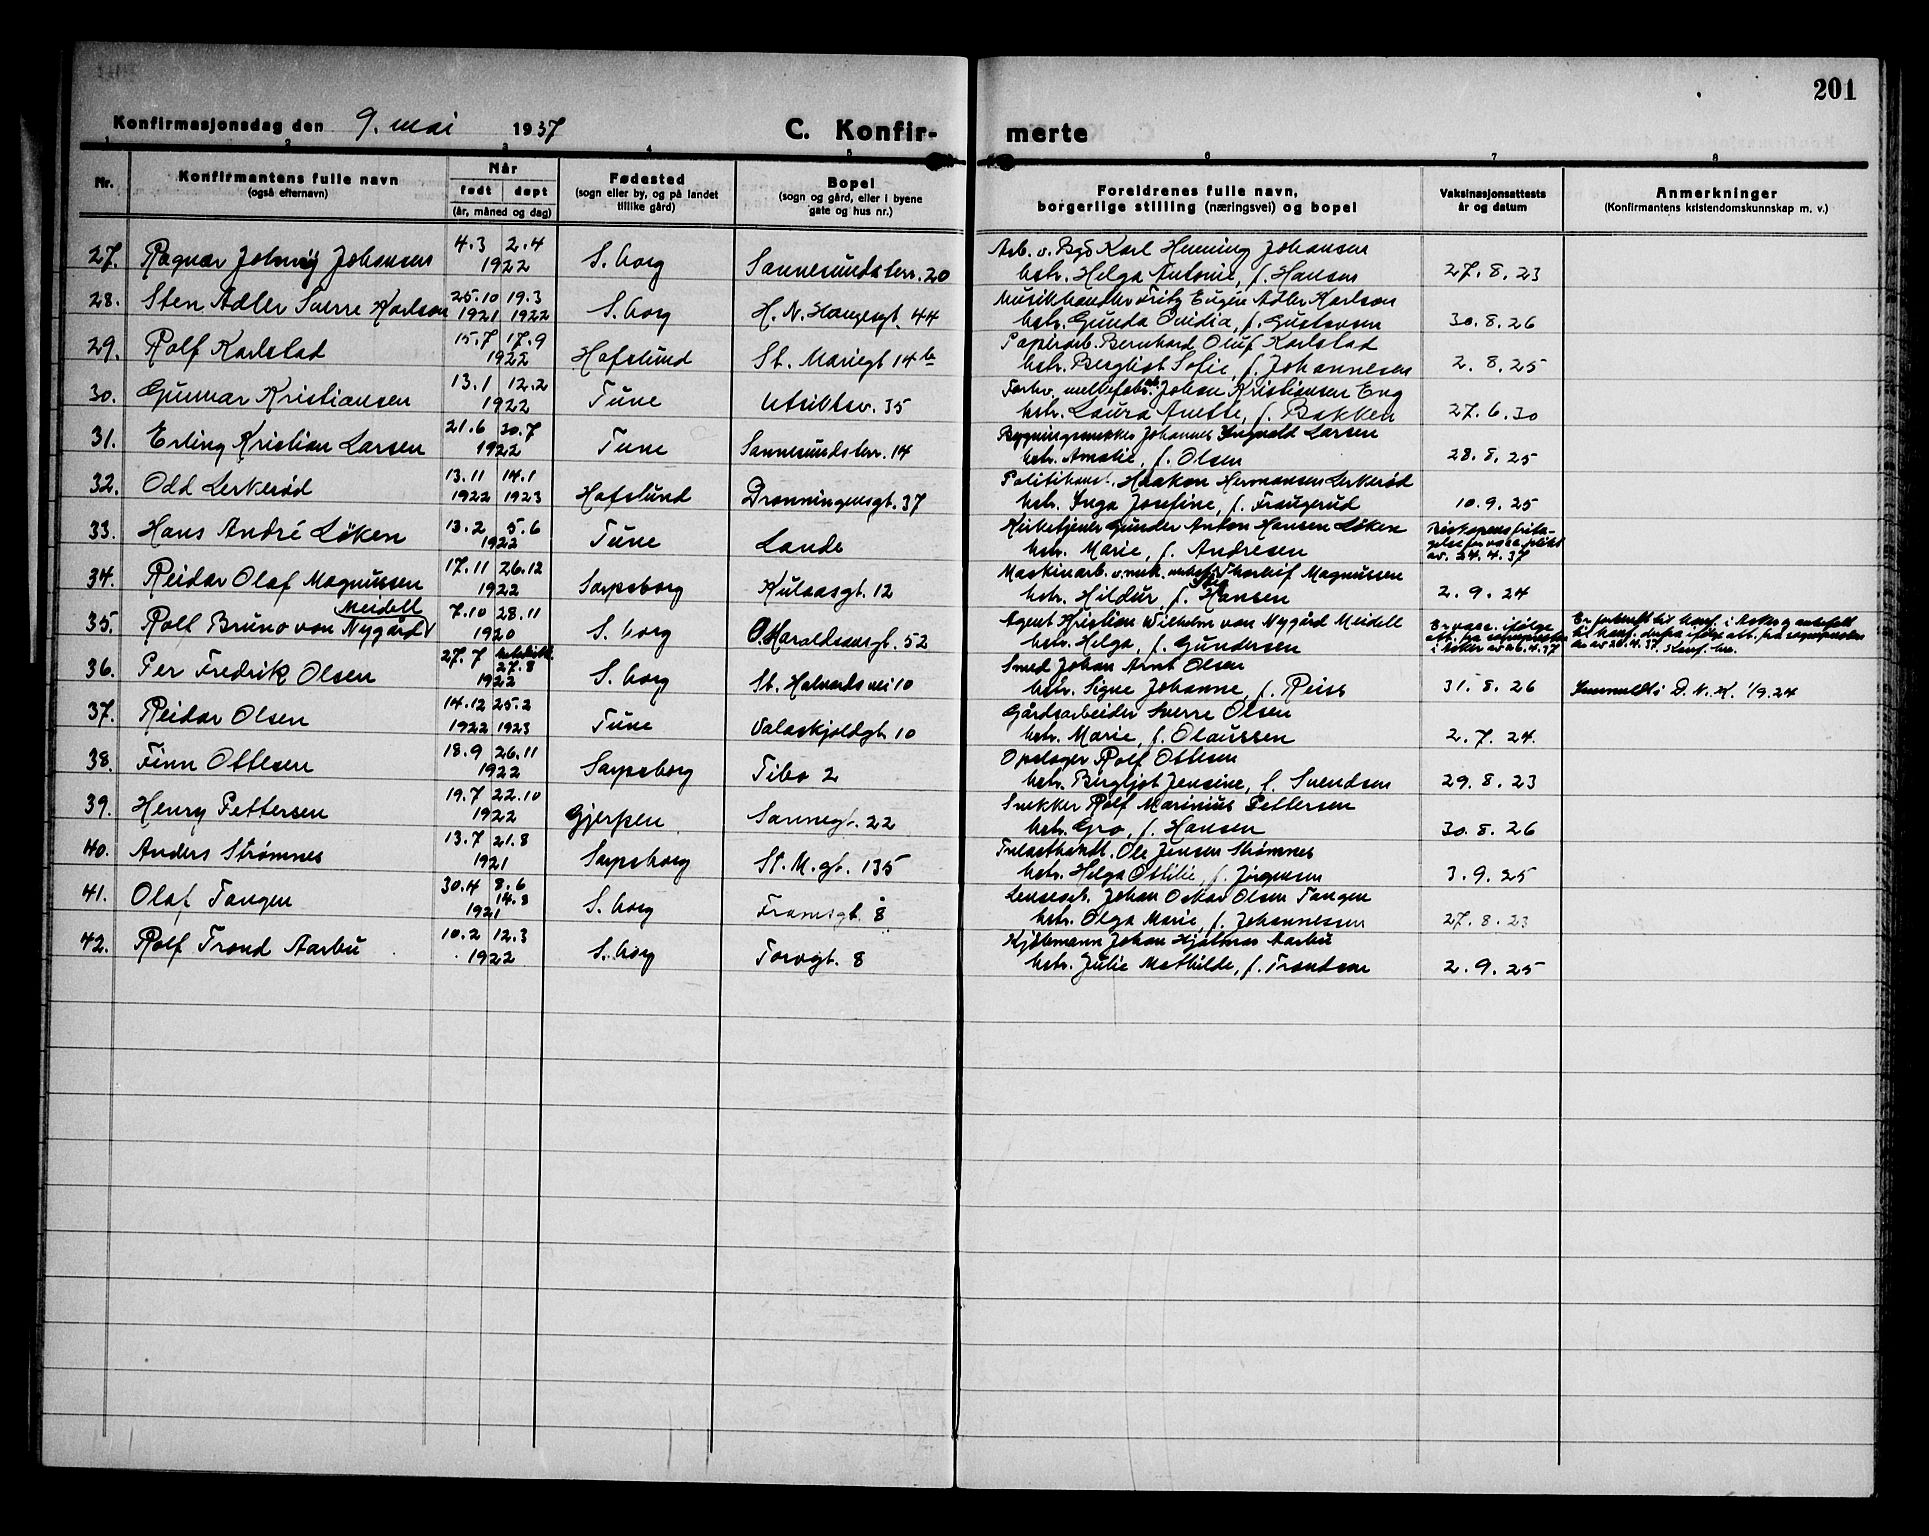 201
Konfirmasjonsdag den 9. mai 1937
C. Konfirmerte
1 2 3 4 5 6 7 8
Nr.
Konfirmantens fulle navn
(også efternavn)
Når
født døpt
(år, måned og dag)
Fødested
(sogn eller by, og på landet
tillike gård)
Bopel
(sogn og gård, eller i byene
gate og hus nr.)
Foreldrenes fulle navn,
borgerlige stilling (næringsvei) og bopel
Vaksinasjonsattests
år og datum
Anmerkninger
(Konfirmantens kristendomskunnskap m. v.)
27. Ragnar Johansen 4.3 2.4 1922 S.borg Sannesundsterr. 20
Arb. v. Karl Henning Johansen
hstr. Helga Antonie, f. Hansen 27.8.23
28. Sten Adler Sverre Karlson 25.10 1921 19.3 1922 S.borg H. N. Haugesgt. 44
Musikhandler Fritz Eugen Adler Karlson
hstr. Gunda Ovidia, f. Gustavsen 30.8.26
29. Rolf Karlstad 15.7 17.9 1922 Hafslund St. Mariegt 14b
Papirarb. Bernhard Oluf Karlstad
hstr. Bergliot Sofie, f. Johannesen 2.8.25
30. Gunnar Kristiansen 13.1 12.2 1922 Tune Utsiktsv. 35
Johan Kristiansen Eng
hstr. Laura Anette, f. Bakken 27.6.30
31. Erling Kristian Larsen 21.6 30.7 1922 Tune Sannesundsterr. 14
Johannes Ingvald Larsen
hstr. Amalie, f. Olsen 28.8.25
32. Odd Lerkerød 13.11 1922 14.1 1923 Hafslund Dronningensgt. 37
Haakon Hermansen Lerkerød
hstr. Inga Josefine, f. Fraugerud 10.9.25
33. Hans André Løken 13.2 5.6 1922 Tune Lande
Kirketjener Gunder Anton Hansen Løken
hstr. Marie, f. Andresen
av. 24.4.37
34. Reidar Olaf Magnussen 17.11 26.12 1922 Sarpsborg Kulaasgt. 12
Maskinarb. v. mek. verkst. Thorleif Magnussen
hstr. Hildur f. Hansen 2.9.24
35. Rolf Bruno von Nygård Meidell 7.10 28.11 1920 S.borg O. Haraldssønsgt. 52
Agent Kristian Wilhelm von Nygård Meidell
hstr. Helga, f. Gundersen
Er vacc. ifølge
att. fra sognepresten
i Asker av 26.4.37
36. Per Fredrik Olsen 27.7 27.8 1922 S.borg St. Halvardsvei 10
Smed Johan Arnt Olsen
hstr. Signe Johanne, f. Reiss 31.8.26 Innmeldt i D.N.K. 1/9.24
37. Reidar Olsen 14.12 1922 25.2 1923 Tune Valaskjoldgt. 10
Gårdsarbeider Sverre Olsen
hstr. Marie, f. Olaussen 2.7.24.
38. Finn Ottesen 18.9 26.11 1922 Sarpsborg Tibo 2
Opslager Rolf Ottesen
hstr. Bergljot Jensine, f. Svendsen 29.8.23
39. Henry Pettersen 19.7 22.10 1922 Gjerpen Sannegt. 22
Snekker Rolf Marinius Pettersen
hstr. Gro, f. Hansen 30.8.26
40. Anders Strømnes 13.7 21.8 1921 Sarpsborg St. M. gt. 135
Trelasthandl. Ole Jensen Strømnes
hstr. Helga Ottilie, f. Jørgensen 3.9.25
41. Olaf Tangen 30.4 8.6 14.8 1921 S.borg Framsgt. 8
Lensearb. Johan Oskar Olsen Tangen
hstr. Olga Marie, f. Johannessen 27.8.23
42. Rolf Trond Aarbu 10.2 12.3 1922 S.borg Torvgt. 8
Kjølemann Johan Hjalmar Aarbu
hstr. Julie Mathilde, f. Trondsen 2.9.25